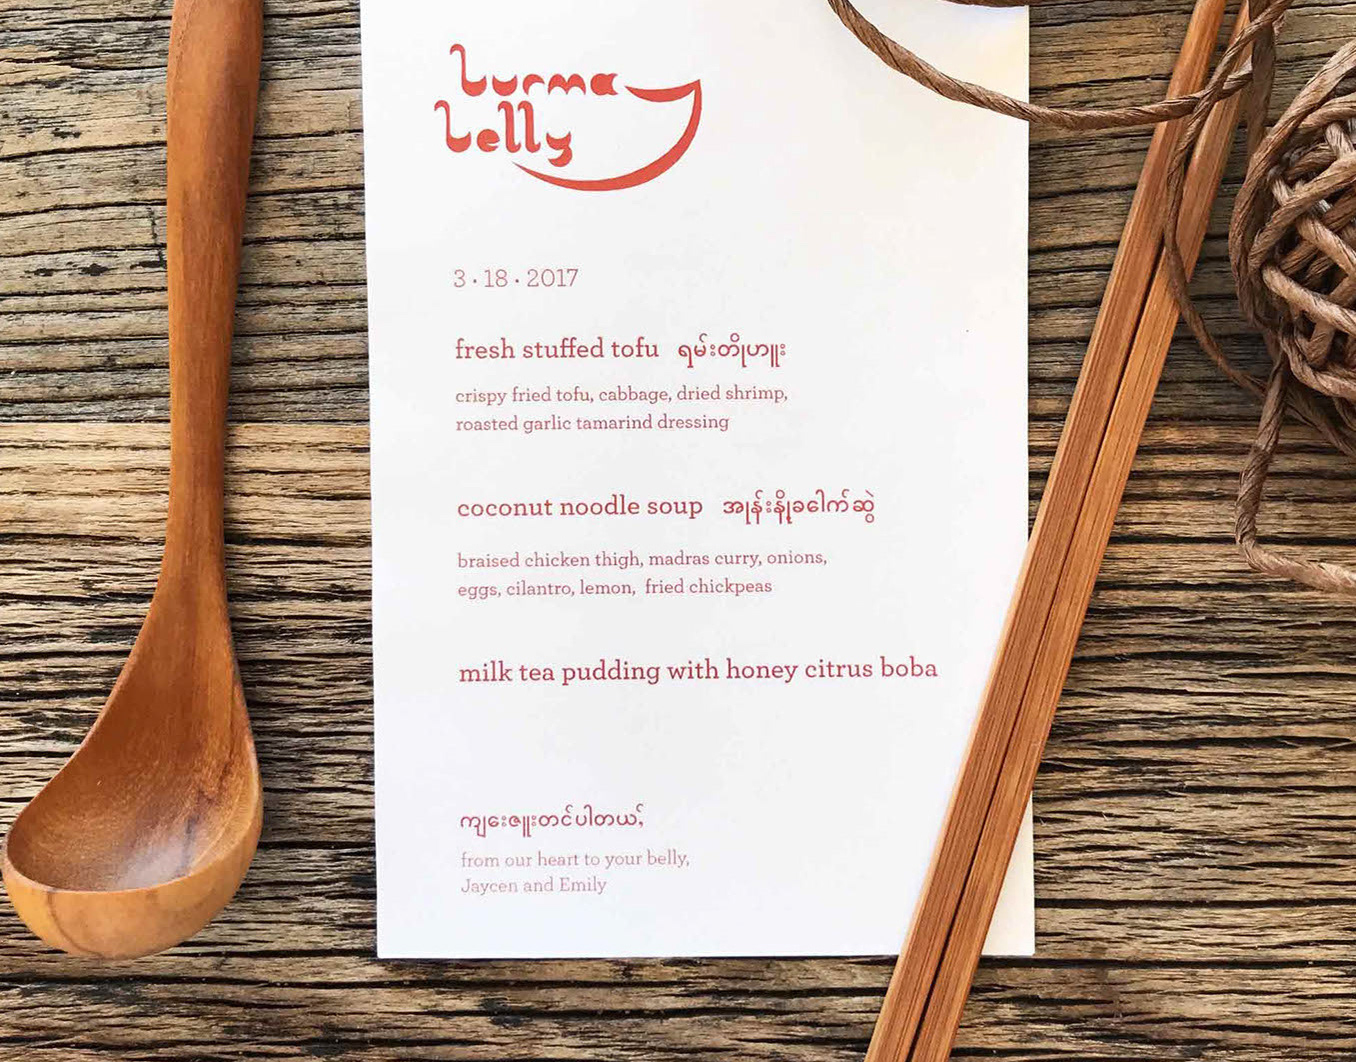 burma
belly
3 · 18 · 2017
fresh stuffed tofu
crispy fried tofu, cabbage, dried shrimp,
roasted garlic tamarind dressing
coconut noodle soup
braised chicken thigh, madras curry, onions,
eggs, cilantro, lemon, fried chickpeas
milk tea pudding with honey citrus boba
from our heart to your belly,
Jaycen and Emily